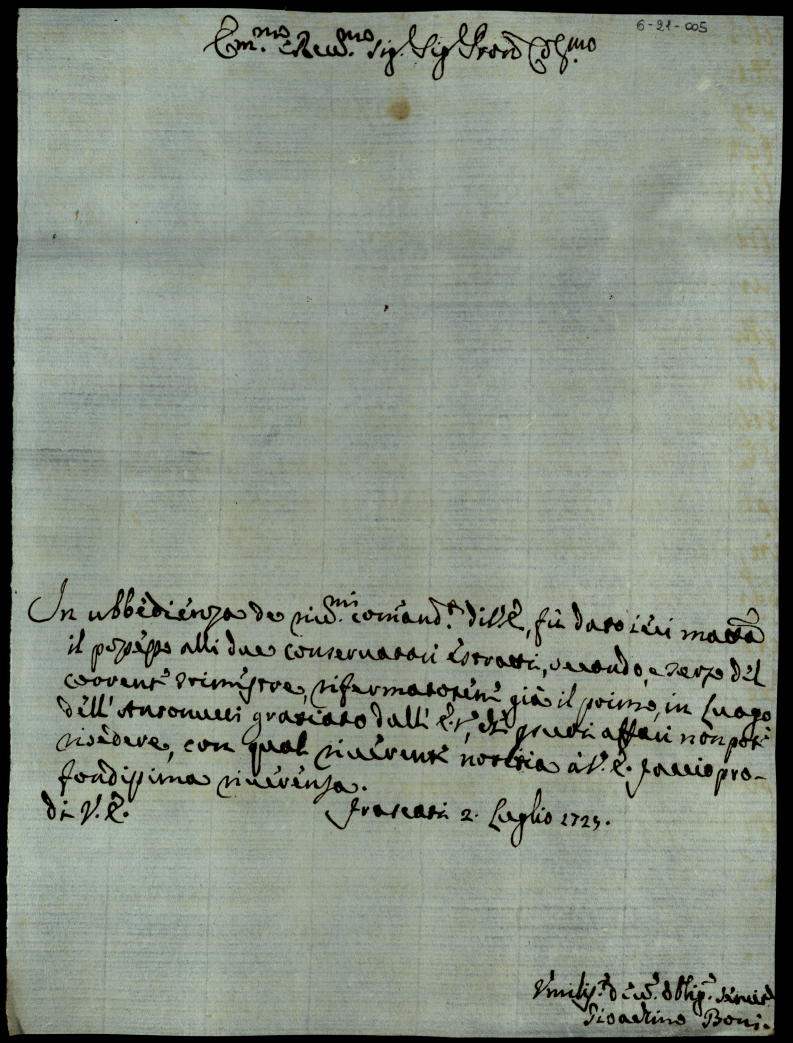 6-21-005
Em.mo e Reu.mo Sig. Sig. Pron Col.mo
In ubbedienza de riu.mi comand.ti di V. E., fù dato ieri matta
il possesso alli due conservatori estratti, secondo, e terzo del
corrente trimestre, rifermatosene già il primo, in luogo
dell' Antonucci graziato dall' E. V., che per suoi affari non potè
risedere, con qual riuerente notitia à V. E. faccio pro-
fondissima riuerenza.
di V. E.
Frascati 2. Luglio 1725.
Vmiliss.o Deu. Oblig. Seruit
Gioachino Boni.